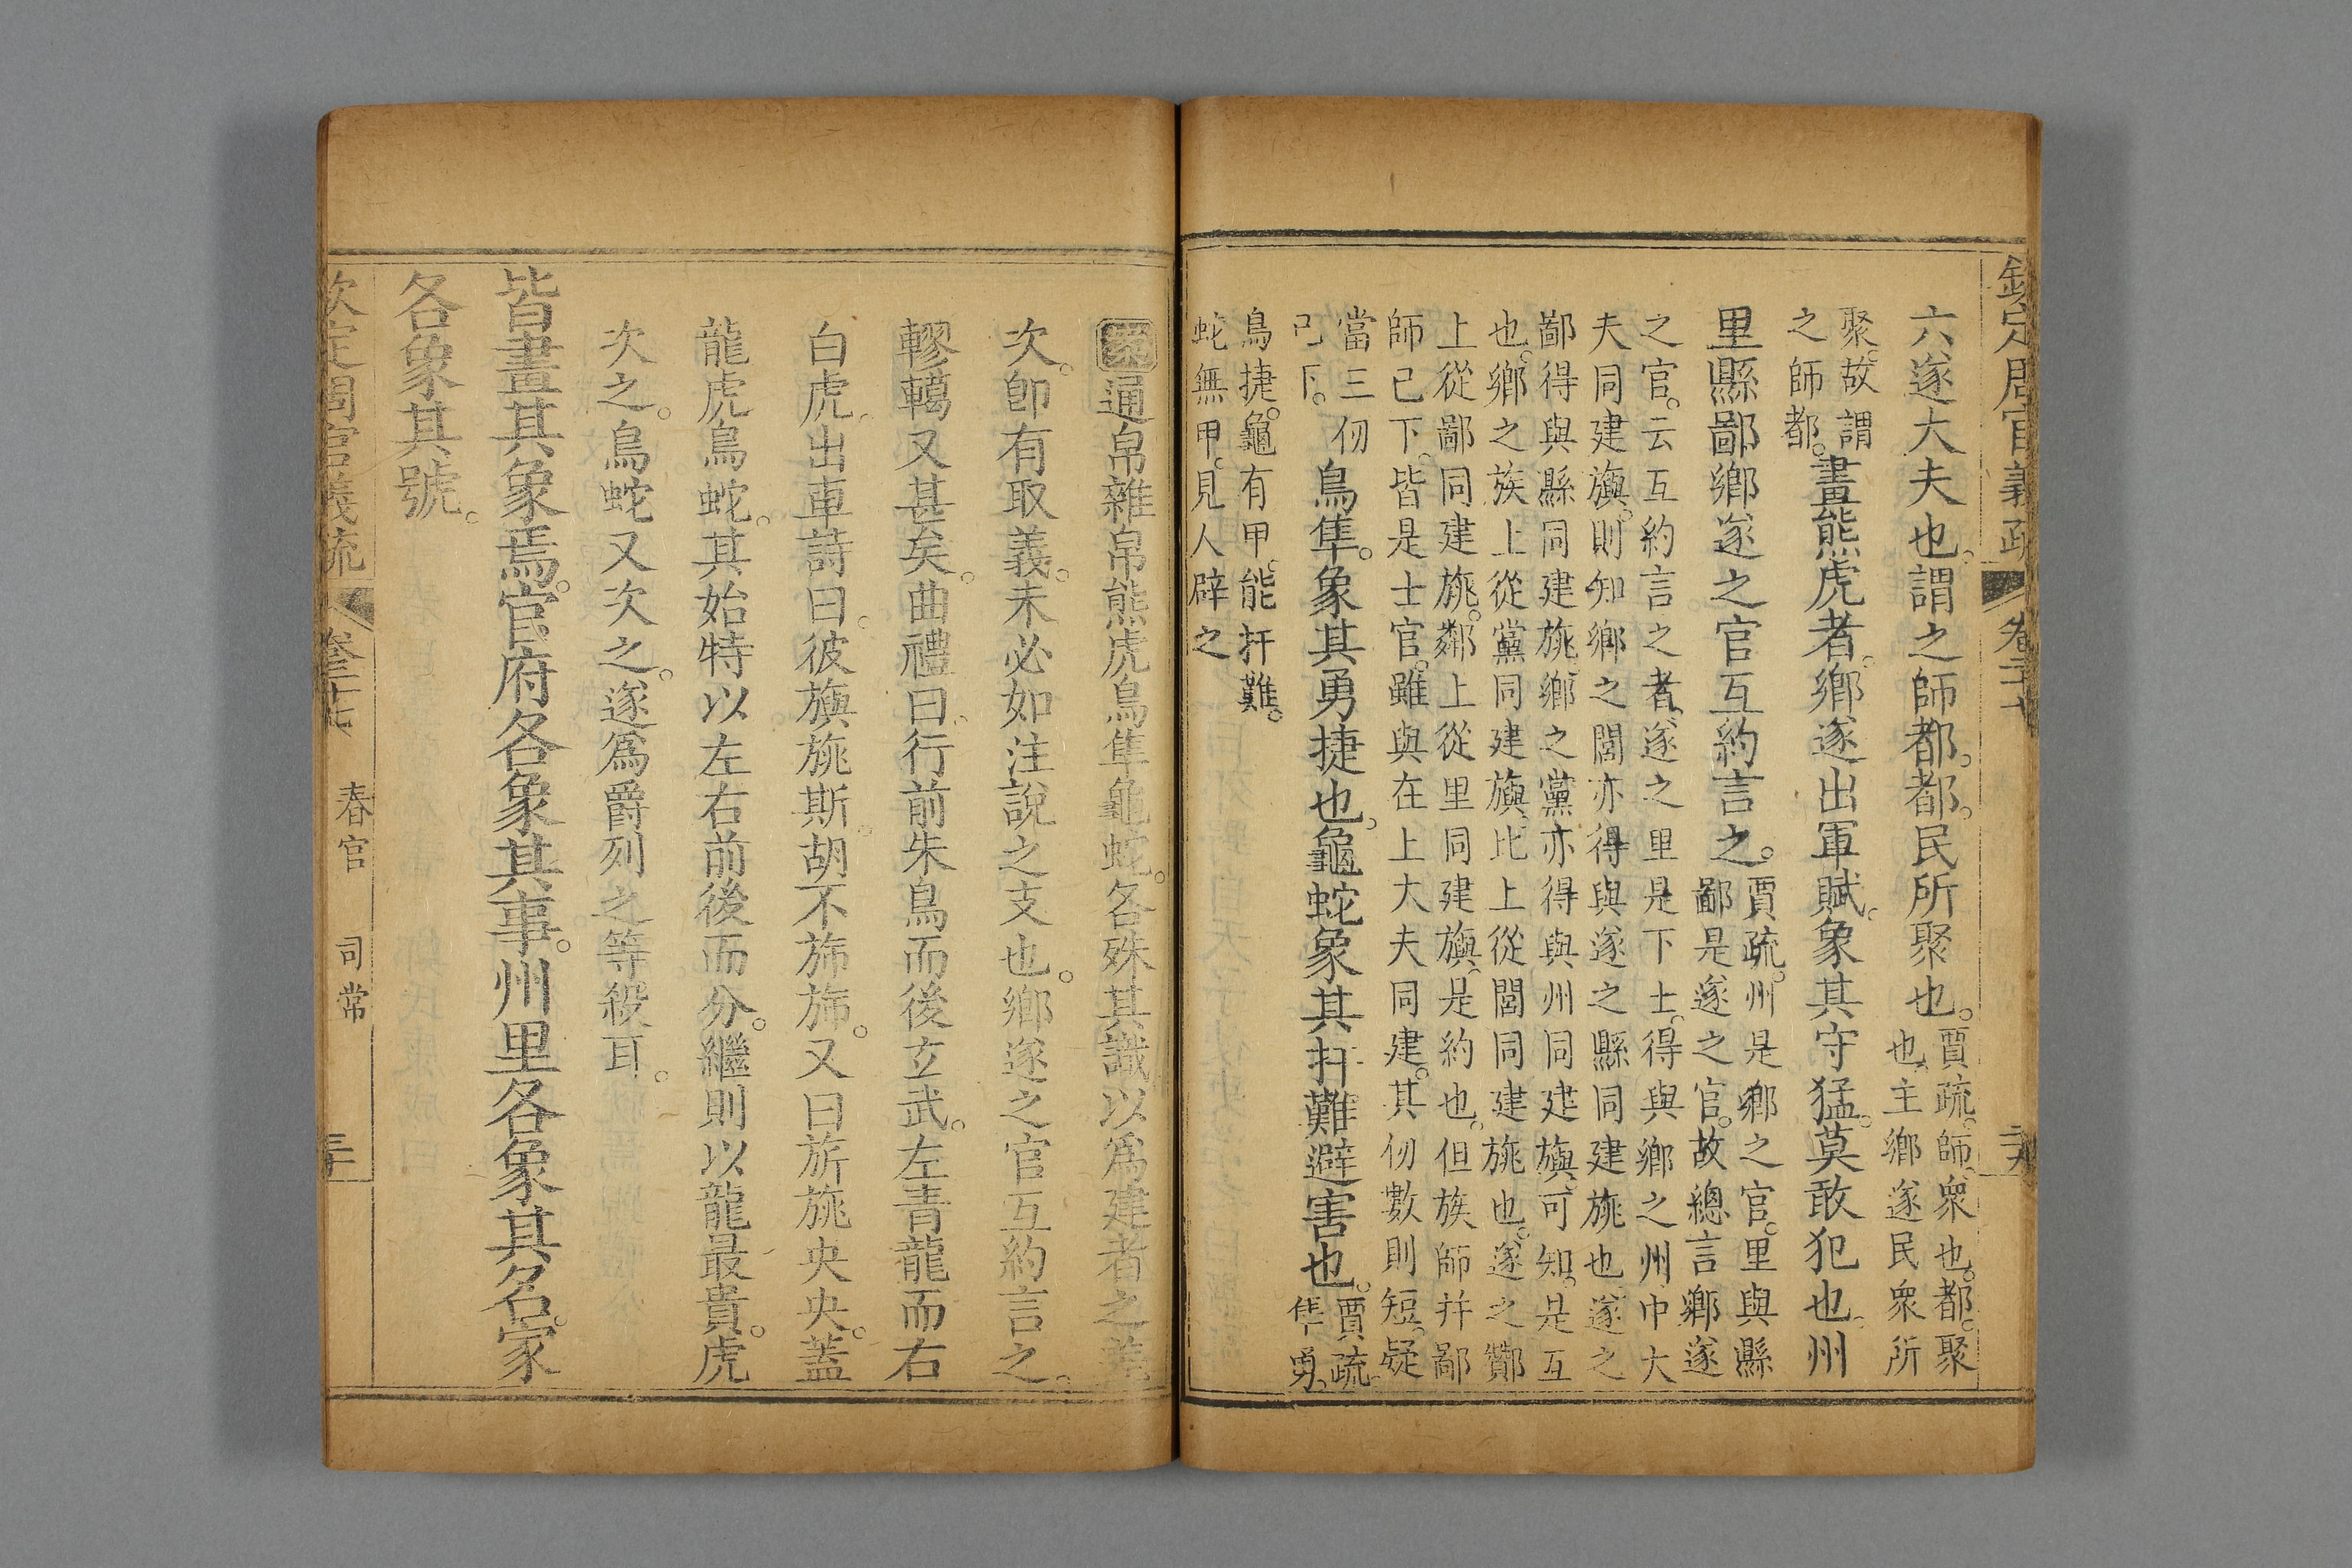 欽定周官義疏 卷二十七 二十八
六遂大夫也。謂之師都。都。民所聚也。賈疏。師。衆也。都。聚
也。主鄉遂民衆所
聚。故謂
之師都。畫熊虎者。鄉遂出軍賦。象其守猛。莫敢犯也。州
里縣鄙鄉遂之官互約言之。賈疏。州是鄉之官。里與縣
鄙是遂之官。故總言鄉遂
之官。云互約言之者。遂之里是下士。得與鄉之州中大
夫同建旟。則知鄉之閭亦得與遂之縣同建旐也。遂之
鄙得與縣同建旐。鄉之黨亦得與州同建旟。可知。是互
也。鄉之族上從黨同建旟。比上從閭同建旐也。遂之酇
上從鄙同建旐。鄰上從里同建旟。是約也。但族師幷鄙
師已下。皆是士官。雖與在上大夫同建。其仞數則短。疑
當三仞
已下。鳥隼。象其勇捷也。龜蛇象其扞難避害也。賈疏。
隼勇。
鳥捷。龜有甲。能扞難。
蛇無甲。見人辟之
案通帛雜帛熊虎鳥隼龜蛇。各殊其識以爲建者之等
次。卽有取義。未必如注說之支也。鄉遂之官互約言之。
轇轕又甚矣。曲禮曰。行前朱鳥而後玄武。左青龍而右
白虎。出車詩曰。彼旟旐斯。胡不旆旆。又曰旂旐央央。蓋
龍虎鳥蛇。其始特以左右前後而分。繼則以龍最貴。虎
次之。鳥蛇又次之。遂爲爵列之等殺耳。
皆畫其象焉。官府各象其事。州里各象其名。家
各象其號。
欽定周官義疏 卷二十七 春官 司常 二十